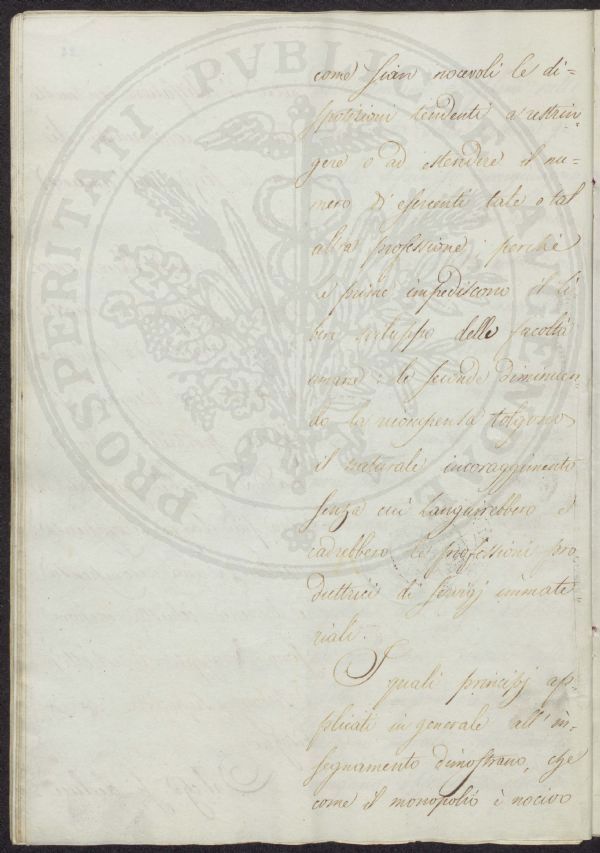 come sian nocevoli le di=
sposizioni tendenti a restrin=
gere o ad estendere il nu=
mero di esercenti tale o tal
altra professione; perchè
le prime impediscono il li
bero sviluppo delle facoltà
umane: le seconde diminuen
do la ricompensa tolgono
il naturale incoraggimento
senza cui languirebbero e
cadrebbero le professioni pro
duttrici di servigj immate
riali.
I quali principj ap
plicati in generale all'in=
segnamento dimostrano, che
come il monopolio è nocivo
PROSPERITATI PUBLICAE AUGENDAE